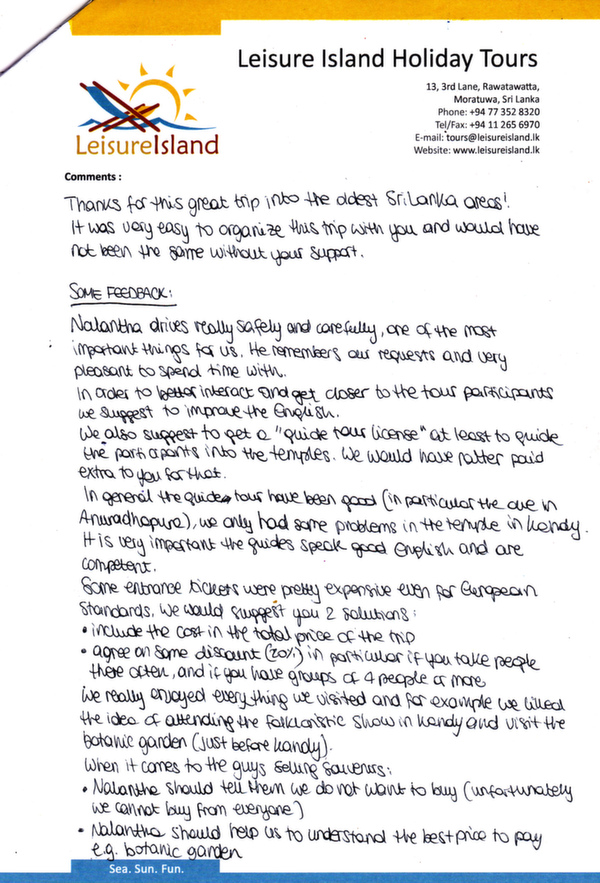 Leisure Island Holiday Tours
13, 3rd Lane, Rawatawatta,
Moratuwa, Sri Lanka
Phone: +94 77 352 8320
Tel/Fax: +94 11 265 6970
E-mail: tours@leisureisland.lk
Website: www.leisureisland.lk
LeisureIsland
Comments :
Thanks for this great trip into the oldest Sri Lanka areas!
It was very easy to organize this trip with you and would have
not been the same without your support.
SOME FEEDBACK:
Nalantha drives really safely and carefully, one of the most
important things for us. He remembers our requests and very
pleasant to spend time with.
In order to better interact and get closer to the tour participants
we suggest to improve the English.
We also suggest to get a "guide tour license" at least to guide
the participants into the temples. We would have rather paid
extra to you for that.
In general the guide tour have been good (in particular the one in
Anuradhapura), we only had some problems in the temple in Kandy.
It is very important the guides speak good English and are
competent.
Some entrance tickets were pretty expensive even for European
standards. We would suggest you 2 solutions:
• include the cost in the total price of the trip
• agree on some discount (20%) in particular if you take people
there often, and if you have groups of 4 people or more
We really enjoyed everything we visited and for example we liked
the idea of attending the folkloristic show in Kandy and visit the
botanic garden (just before Kandy).
When it comes to the guys selling souvenirs:
• Nalantha should tell them we do not want to buy (unfortunately
we cannot buy from everyone)
• Nalantha should help us to understand the best price to pay
e.g. botanic garden
Sea. Sun. Fun.